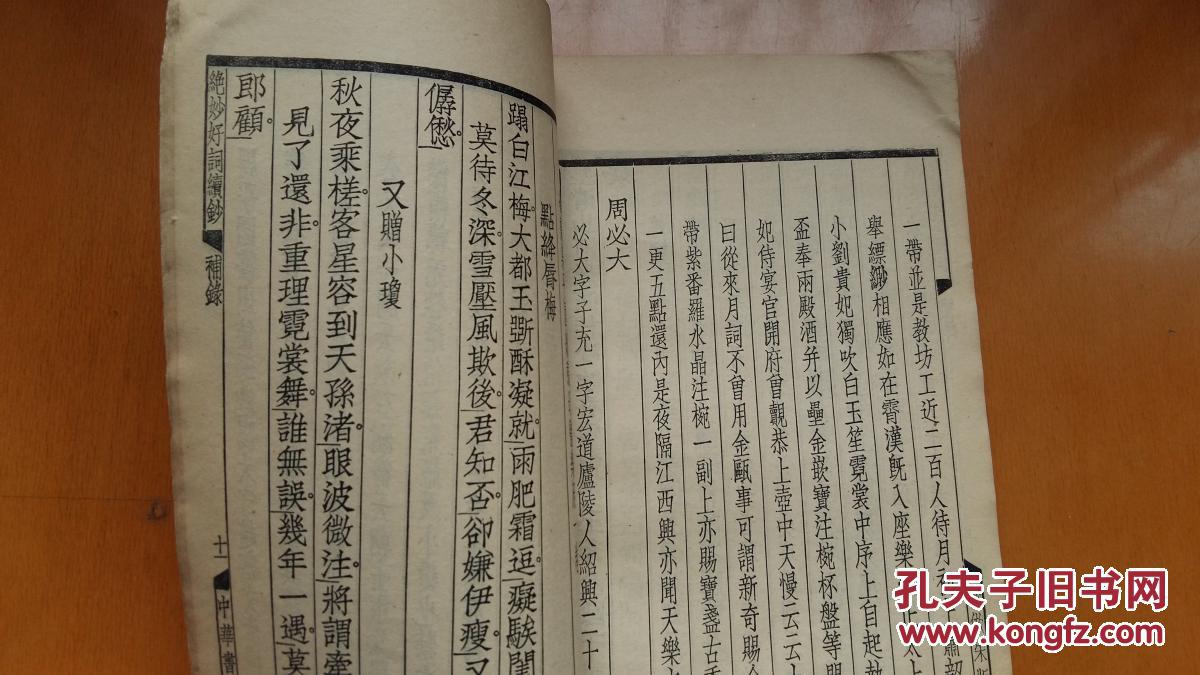 一帶並是教坊工近二百人待月
舉縹緲相應如在霄漢旣入座樂
小劉貴妃獨吹白玉笙霓裳中序上自起執
盃奉兩殿酒并以壘金嵌寶注椀杯盤等
妃侍宴官開府曾覿恭上壺中天慢云云
曰從來月詞不曾用金甌事可謂新奇賜
帶紫番羅水晶注椀一副上亦賜寶盞古
一更五點還內是夜隔江西興亦聞天樂
周必大
必大字子充一字宏道廬陵人紹興二十
點絳脣梅
蹋白江梅大都玉斲酥凝就雨肥霜逗癡騃閨
莫待冬深雪壓風欺後君知否卻嫌伊瘦又
僝僽
又贈小瓊
秋夜乘槎客星容到天孫渚眼波微注將謂牽
見了還非重理霓裳舞誰無誤幾年一遇莫
郎顧
絶妙好詞續鈔 補錄 十一 中華書
孔夫子旧书网
www.kongfz.com